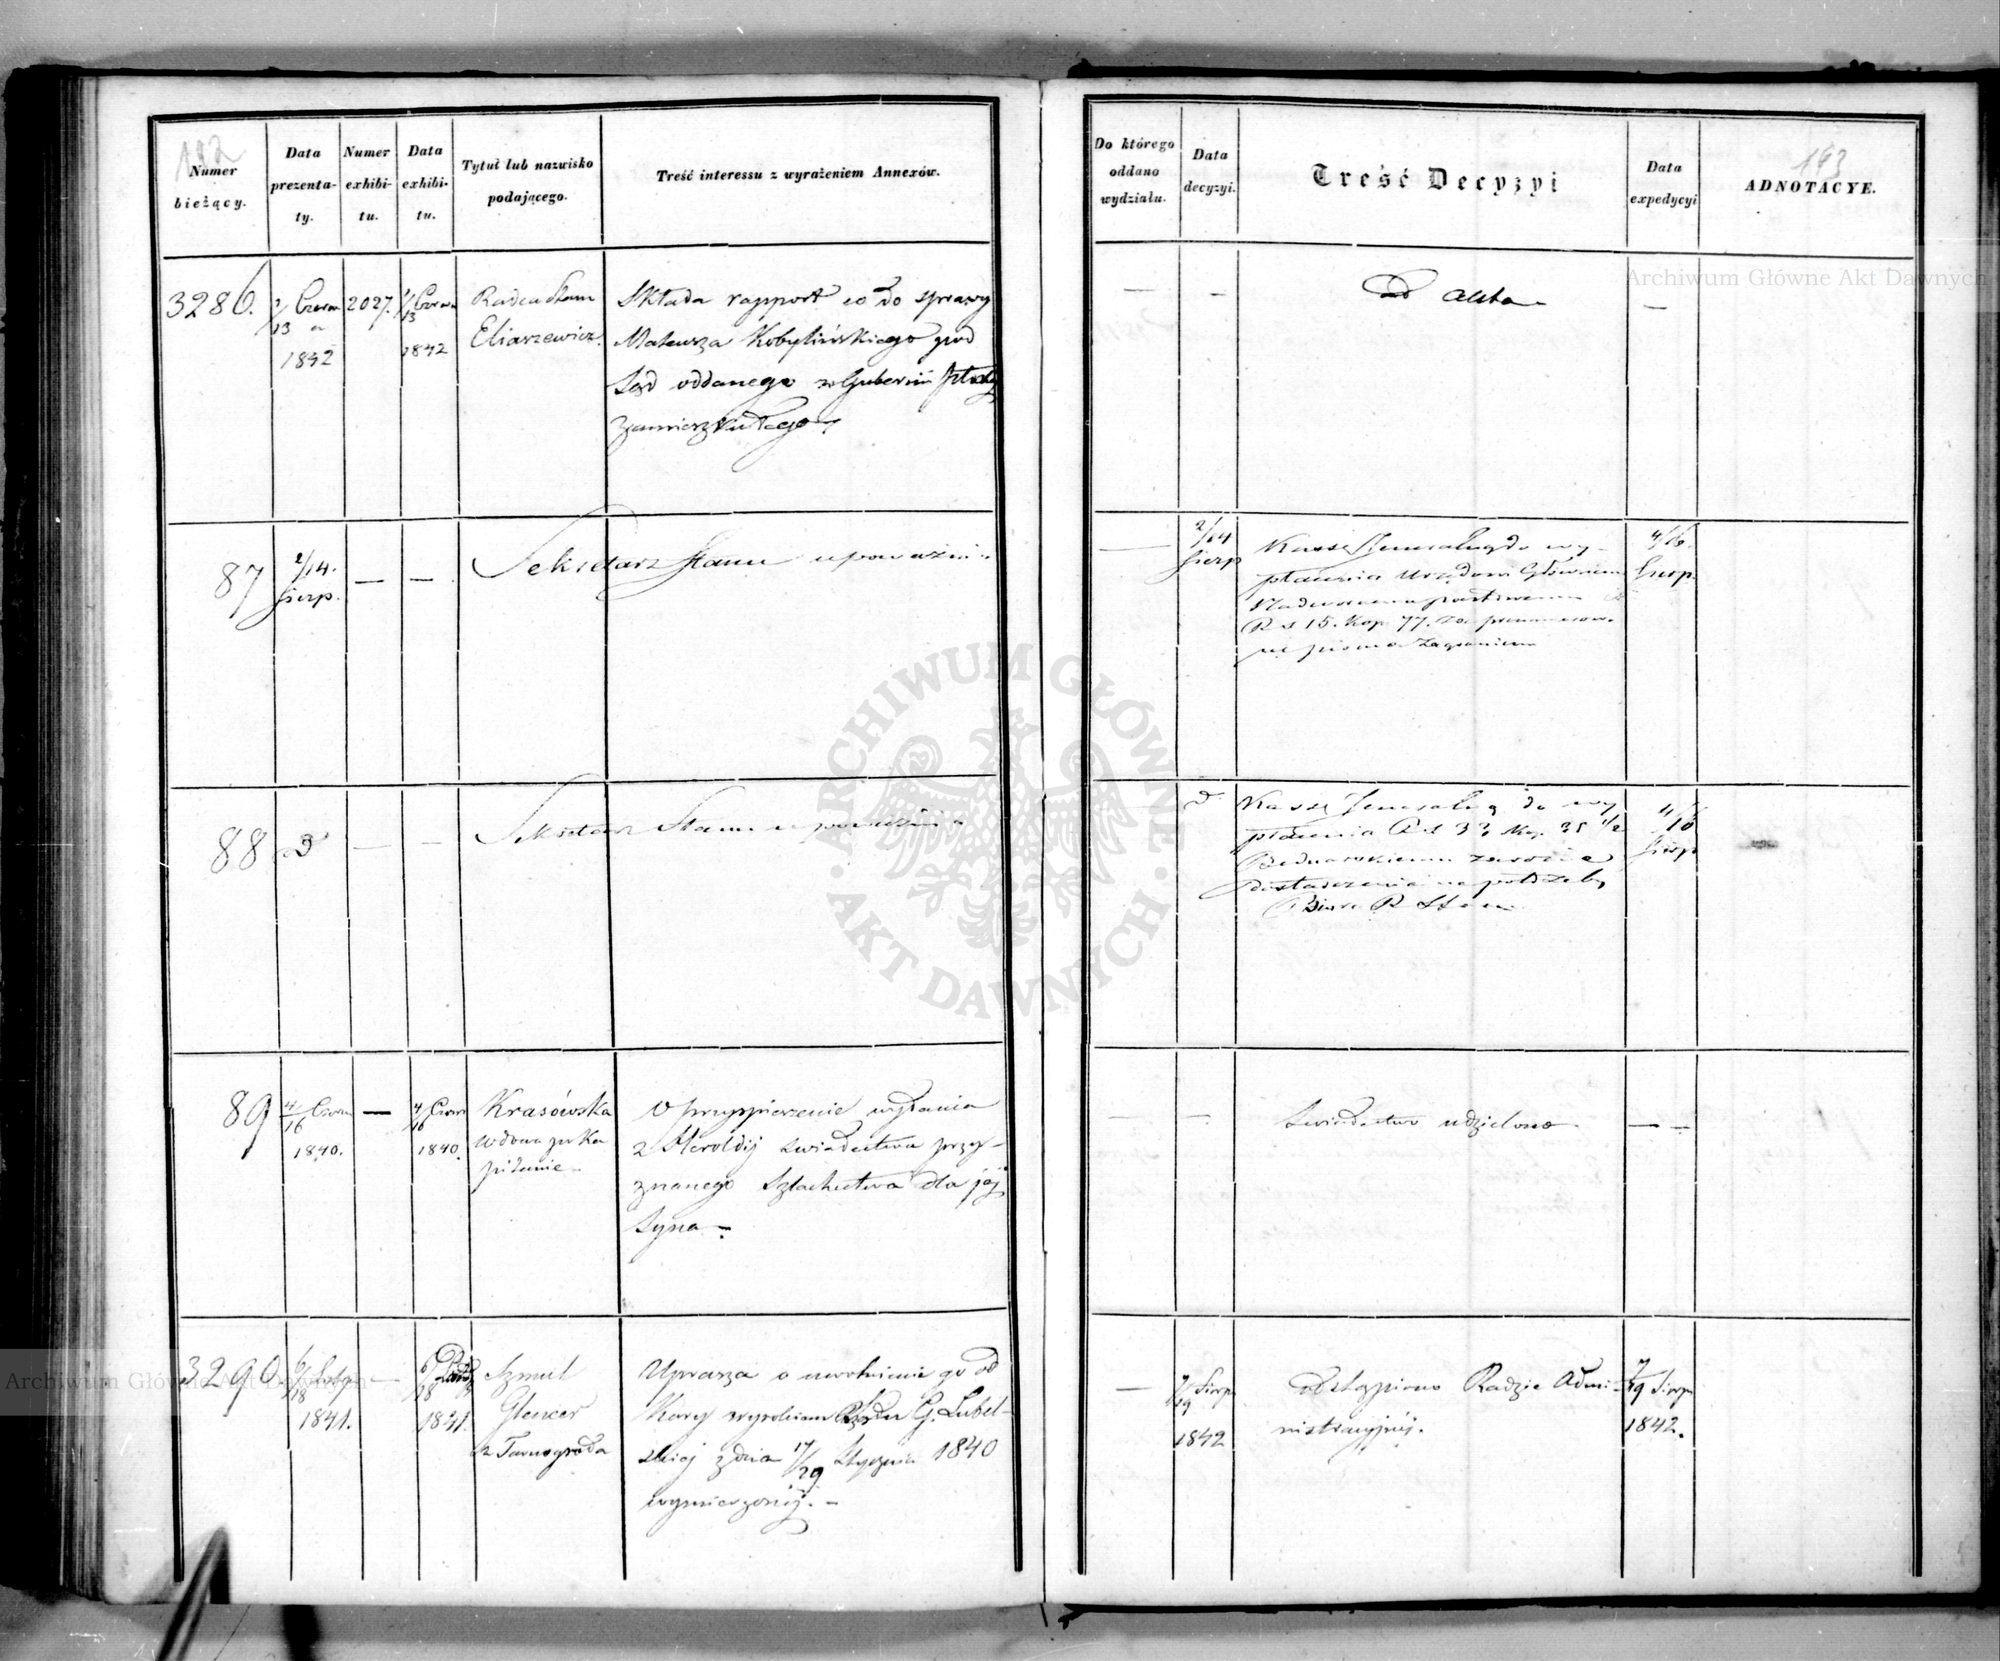 192
Numer bieżący.
Data prezentaty.
Numer exhibitu.
Data exhibitu.
Tytuł lub nazwisko podającego.
Treść interessu z wyrażeniem Annexów.
Do którego oddano wydziału.
Data decyzyi.
Treść Decyzyi
Data expedycyi
ADNOTACYE.
193
3286.
1/13 Czerw
1842
2027.
1/13 Czerw
1842
Radca Stanu
Eliaszewicz.
Składa rapport co do sprawy
Mateusza Kobylińskiego pod
Sąd oddanego w Gubernii
zamieszkałego
ad acta
87
2/14.
Sierp.
Sekretarz Stanu upoważnia
2/14
Sierp
Kassę Jeneralną do wy-
płacenia Urzędowi
R s 15. Kop 77. za
pisma zagraniczne
4/16.
Sierp.
88
d
Sekretarz Stanu upoważnia
d
Kassę Jeneralną do wy
płacenia R s 33 Kop. 35 1/2
Bednarskiemu za różne
dostarczenia na potrzeby
Biura R Stanu
4/16
Sierp
89
4/16 Czerw
1840.
4/16 Czerw
1840.
Krasowska
wdowa po Ka
pitanie
O przyspieszenie wydania
z Heroldij świadectwa przy-
znanego Szlachectwa dla jej
Syna
Świadectwo udzielono
3290
6/18 Lutego
1841.
6/18
1841.
Szmul
Glencer
z Tarnogroda
Uprasza o uwolnienie go od
Kary wyrokiem Rządu G. Lubel-
skiej z dnia 17/29 Stycznia 1840
wymierzonej.
7/19 Sierp
1842
odstąpiono Radzie Admi-
nistracyjnej.
7/19 Sierp
1842.
Archiwum Główne Akt Dawnych
ARCHIWUM GŁÓWNE
AKT DAWNYCH
Archiwum Główne Akt Dawnych